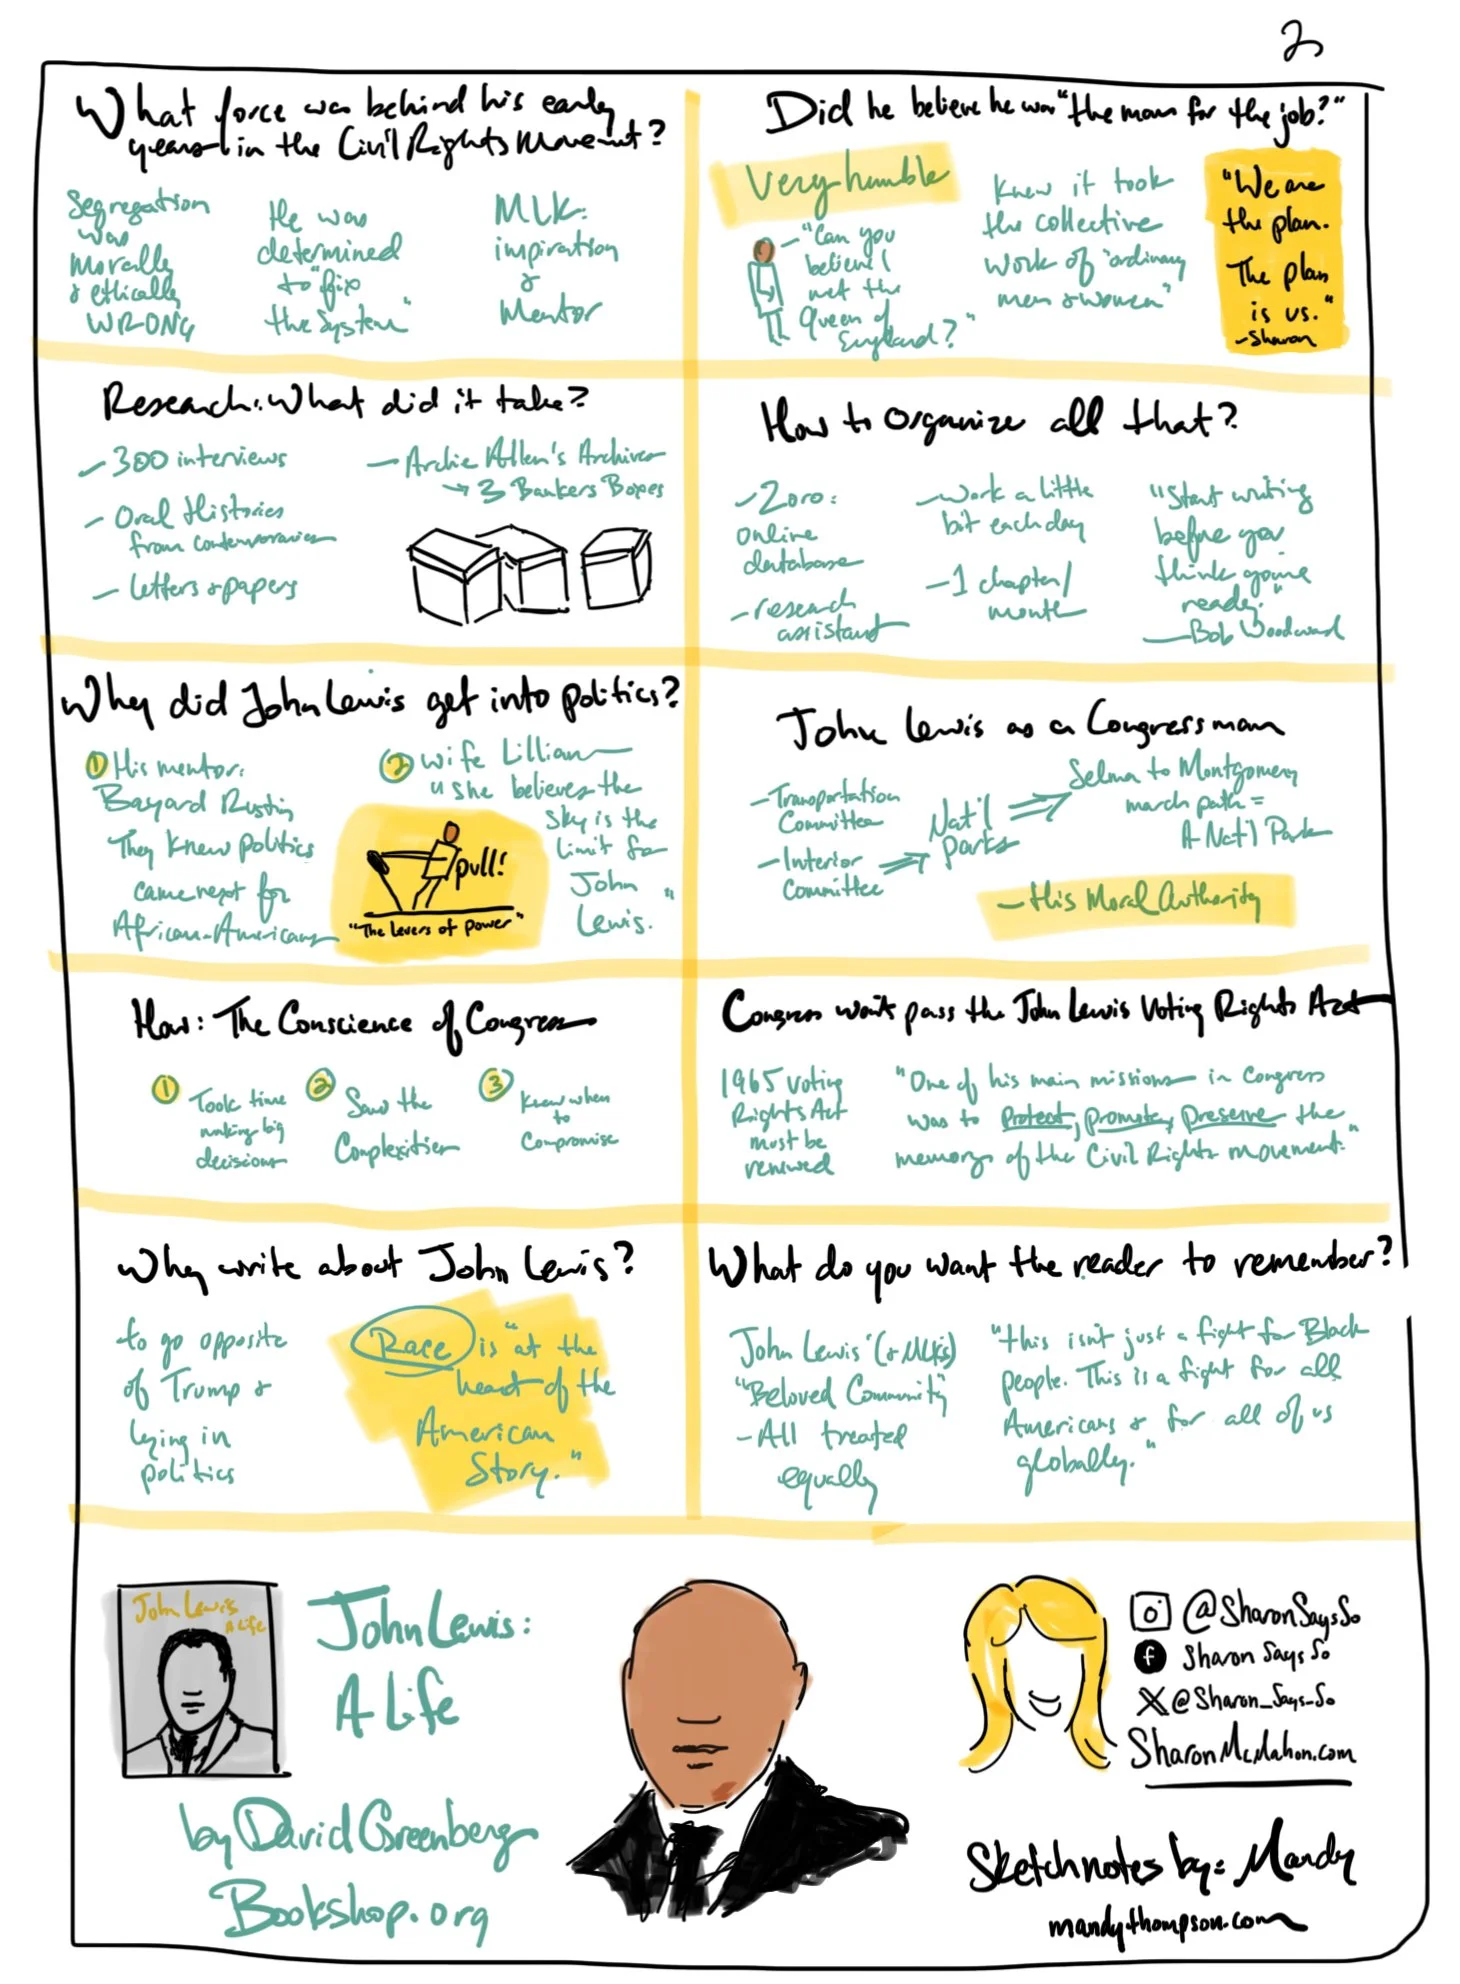 2
What force was behind his early
years in the Civil Rights Movement?
Segregation
was
Morally
& ethically
WRONG
He was
determined
to "fix
the System"
MLK:
inspiration
&
Mentor
Did he believe he was "the man for the job?"
Very humble
"Can you
believe I
met the
Queen of
England?"
Knew it took
the collective
work of "ordinary
men & women"
"We are
the plan.
The plan
is us."
-Sharon
Research: What did it take?
- 300 interviews
- Oral Histories
from contemporaries
- letters & papers
- Archie Allen's Archives
→ 3 Bankers Boxes
How to organize all that?
- Zoro:
online
database
- research
assistant
- work a little
bit each day
- 1 chapter/
month
"Start writing
before you
think you're
ready."
- Bob Woodward
Why did John Lewis get into politics?
1 His mentor:
Bayard Rustin
They knew politics
came next for
African-Americans
pull!
"The levers of power"
2 wife Lillian
"She believes the
sky is the
limit for
John
Lewis."
John Lewis as a Congressman
- Transportation
Committee
- Interior
Committee
Nat'l
parks
Selma to Montgomery
march path =
A Nat'l Park
- His Moral Authority
How: The Conscience of Congress
1 Took time
making big
decisions
2 Saw the
Complexities
3 Knew when
to
Compromise
Congress won't pass the John Lewis Voting Rights Act
1965 Voting
Rights Act
must be
renewed
"One of his main missions in Congress
was to protect, promote, preserve the
memory of the Civil Rights movement."
Why write about John Lewis?
to go opposite
of Trump &
lying in
politics
Race is "at the
heart of the
American
Story."
What do you want the reader to remember?
John Lewis' (& MLK's)
"Beloved Community"
- All treated
equally
"this isn't just a fight for Black
people. This is a fight for all
Americans & for all of us
globally."
John Lewis
A Life
John Lewis:
A Life
by David Greenberg
Bookshop.org
@SharonSaysSo
f Sharon Says So
X @Sharon_Says_So
SharonMcMahon.com
Sketchnotes by: Mandy
mandythompson.com